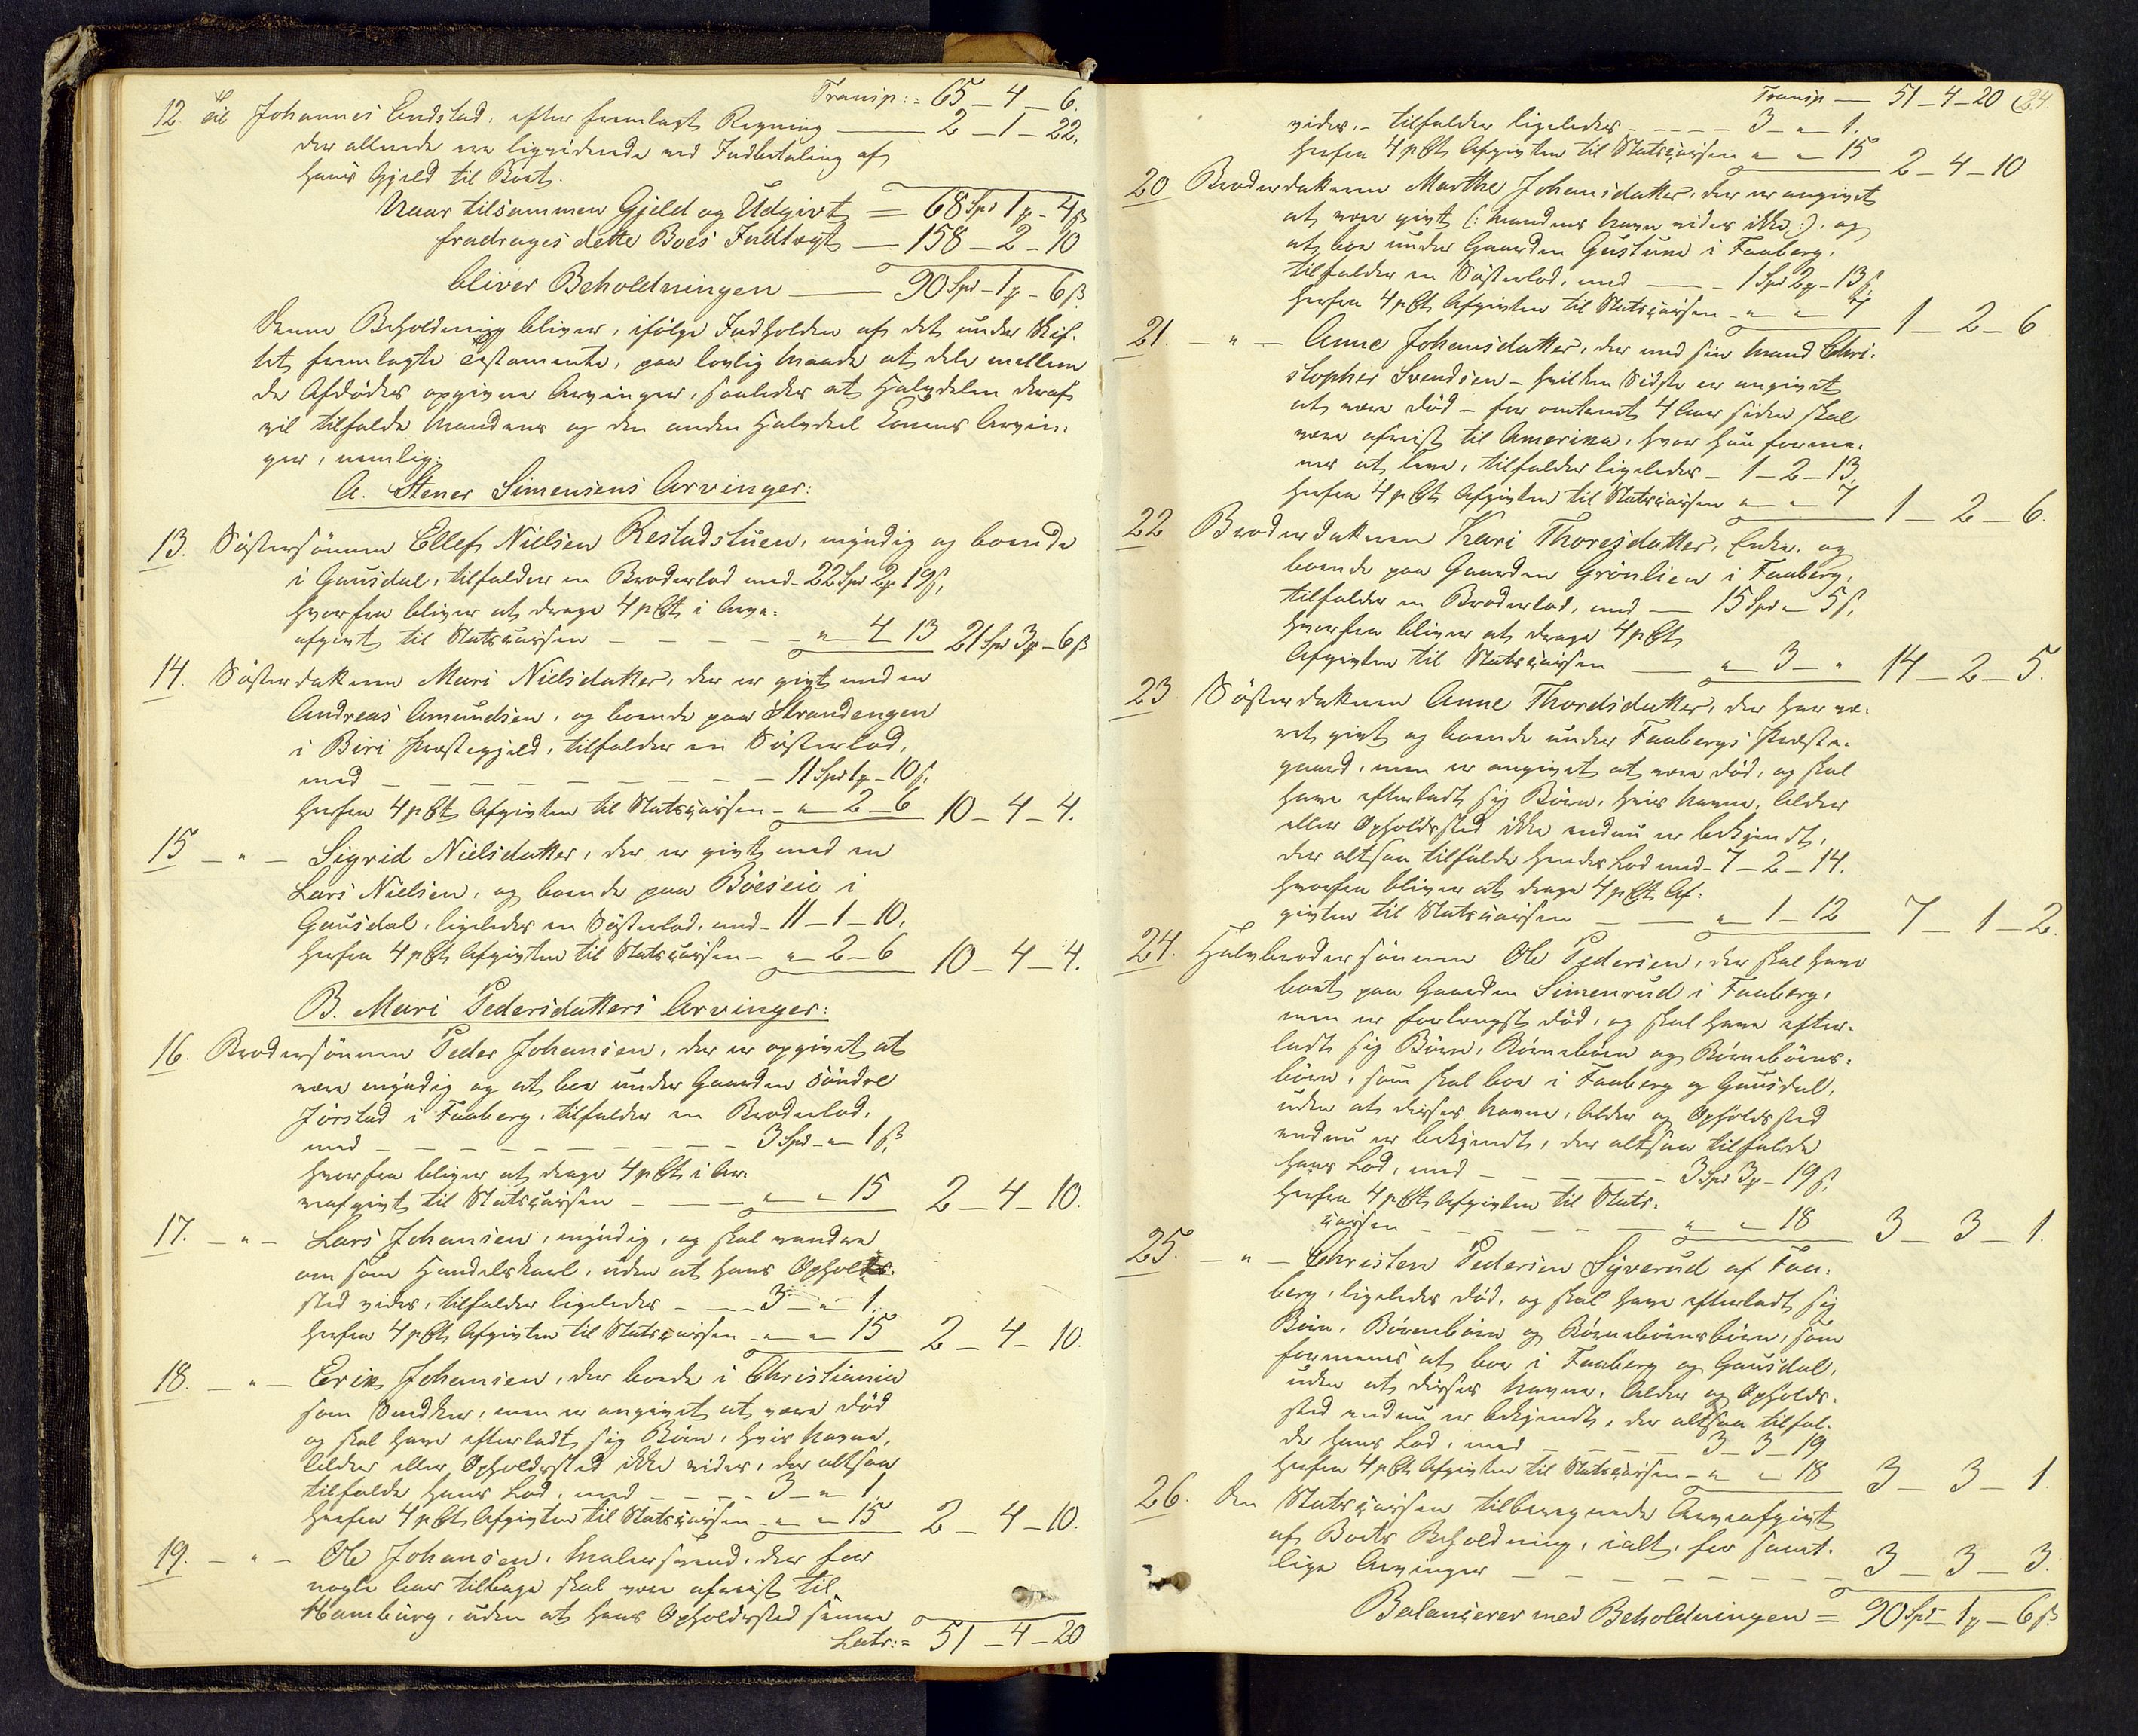 Transp: = 65 _ 4 _ 6.
12. Til Johannes Endstad, efter fremlagt Regning — 2 _ 1 _ 22.
der allerede er liqviderede ved Indbetaling af
hans Gjeld til Boet.
Naar tilsammen Gjeld og Udgivt = 68 Spd 1 ₰ - 4 ß
fradrages dette Boes Indtægt — 158 _ 2 _ 10
bliver Beholdningen — 90 Spd - 1 ₰ - 6 ß.
Denne Beholdning bliver, ifölge Indholden af det under Skif-
tet fremlagte Testamente, paa lovlig Maade at dele mellem
de Afdödes opgivne Arvinger, saaledes at Halvdelen deraf
vil tilfalde Mandens og den anden Halvdeel Konens Arvin-
ger, nemlig:
A. Stener Simensens Arvinger:
13. Söstersönnen Ellef Nielsen Restadstuen, myndig og boende
i Gausdal, tilfalder en Broderlod med - 22 Spd 2 ₰ 19 ß,
hvorfra bliver at drage 4 pCt i Arve-
afgivt til Statscassen _ _ _ _ „ _ 4 13 21 Spd 3 ₰ - 6 ß
14. Sösterdatteren Mari Nielsdatter, der er givt med en
Andreas Amundsen, og boende paa Strandengen
i Biri Præstegjeld, tilfalder en Sösterlod,
med _ _ _ _ _ _ _ 11 Spd 1 ₰ - 10 ß,
herfra 4 pCt Afgivten til Statscassen - „ _ 2 _ 6 10 _ 4 _ 4.
15 _ „ _ Sigrid Nielsdatter, der er givt med en
Lars Nielsen, og boende paa Böeseie i
Gausdal, ligeledes en Sösterlod, med - 11 - 1 - 10,
herfra 4 pCt Afgivten til Statscassen - „ _ 2 - 6 10 _ 4 _ 4.
B. Mari Pedersdatters Arvinger:
16. Brodersönnen Peder Johansen, der er opgivet at
være myndig og at boe under Gaarden söndre
Jörstad i Faaberg, tilfalder en Broderlod,
med _ _ _ _ _ _ _ 3 Spd - „ - 1 ß,
hvorfra bliver at drage 4 pCt i Ar-
veafgivt til Statscassen _ _ _ „ _ „ 15 2 _ 4 _ 10.
17. _ „ _ Lars Johansen, myndig, og skal vandre
om som Handelskarl, uden at hans Opholds-
sted vides, tilfalder ligeledes _ _ _ 3 _ „ _ 1.
herfra 4 pCt Afgivten til Statscassen _ „ _ „ 15 2 _ 4 _ 10.
18. _ „ _ Erik Johansen, der boede i Christiania
som Snedker, men er angivet at være död
og skal have efterladt sig Börn, hvis Navne,
Alder eller Opholdssted ikke vides, der altsaa
tilfalde hans Lod, med _ _ _ 3 _ „ _ 1.
herfra 4 pCt Afgivten til Statscassen _ „ _ „ 15 2 _ 4 _ 10.
19. _ „ _ Ole Johansen, Malersvend, der for
nogle Aar tilbage skal være afreist til
Hamburg, uden at hans Opholdssted senere
Latr: = 51 _ 4 _ 20
Transp — 51 _ 4 _ 20 (24.
vides, - tilfalder ligeledes _ _ _ 3 _ „ _ 1.
herfra 4 pCt Afgivten til Statscassen „ _ „ 15 2 _ 4 _ 10
20 Broderdatteren Marthe Johansdatter, der er angivet
at være givt (: Mandens Navn vides ikke :), og
at boe under Gaarden Gustum i Faaberg,
tilfalder en Sösterlod, med _ _ 1 Spd 2 ₰ - 13 ß,
herfra 4 pCt Afgivten til Statscassen _ „ _ „ 7 1 _ 2 _ 6
21. _ „ _ Anne Johansdatter, der med sin Mand Chri-
stopher Svendsen - hvilken Sidste er angivet
at være död - for omtrent 4 Aar siden skal
være afreist til Amerika, hvor hun forme-
nes at leve, tilfalder ligeledes _ 1 - 2 - 13.
herfra 4 pCt Afgivten til Statscassen „ _ „ 7 1 _ 2 _ 6.
22 Broderdatteren Kari Thoresdatter, Enke, og
boende paa Gaarden Grönlien i Faaberg,
tilfalder en Broderlod, med — 15 Spd „ 5 ß,
hvorfra bliver at drage 4 pCt
Afgivten til Statscassen — „ _ 3 _ „ 14 _ 2 _ 5.
23 Sösterdatteren Anne Thordsdatter, der har væ-
ret givt og boende under Faabergs Præste-
gaard, men er angivet at være död, og skal
have efterladt sig Börn, hvis Navne, Alder
eller Opholdssted ikke endnu er bekjendt,
der altsaa tilfalde hendes Lod med - 7 _ 2 _ 14.
hvorfra bliver at drage 4 pCt Af-
givten til Statscassen _ _ _ „ _ 1 _ 12 7 _ 1 _ 2.
24. Halvbrodersönnen Ole Pedersen, der skal have
boet paa Gaarden Simenrud i Faaberg,
men er forlængst död, og skal have efter-
ladt sig Börn, Börnebörn og Börnebörns-
börn, som skal boe i Faaberg og Gausdal,
uden at disses Navne, Alder og Opholdssted
endnu er bekjendt, der altsaa tilfalde
hans Lod, med _ _ _ _ 3 Spd 3 ₰ - 19 ß,
herfra 4 pCt Afgivten til Stats-
cassen _ _ _ _ _ „ _ „ 18 3 _ 3 _ 1.
25. _ „ _ Christen Pedersen Syverud af Faa-
berg, ligeledes död, og skal have efterladt sig
Börn, Börnebörn og Börnebörnsbörn, som
formenes at boe i Faaberg og Gausdal,
uden at disses Navne, Alder og Opholds-
sted endnu er bekjendt, der altsaa tilfal-
de hans Lod, med _ _ _ _ 3 _ 3 _ 19
herfra 4 pCt Afgivten til Statscassen - „ _ „ 18 3 _ 3 _ 1.
26. Den Statscassen tilberegnede Arveafgivt
af Boets Beholdning, ialt, for samt-
lige Arvinger _ _ _ _ _ _ _ 3 _ 3 _ 3.
Balancerer med Beholdningen = 90 Spd - 1 ₰ - 6 ß.